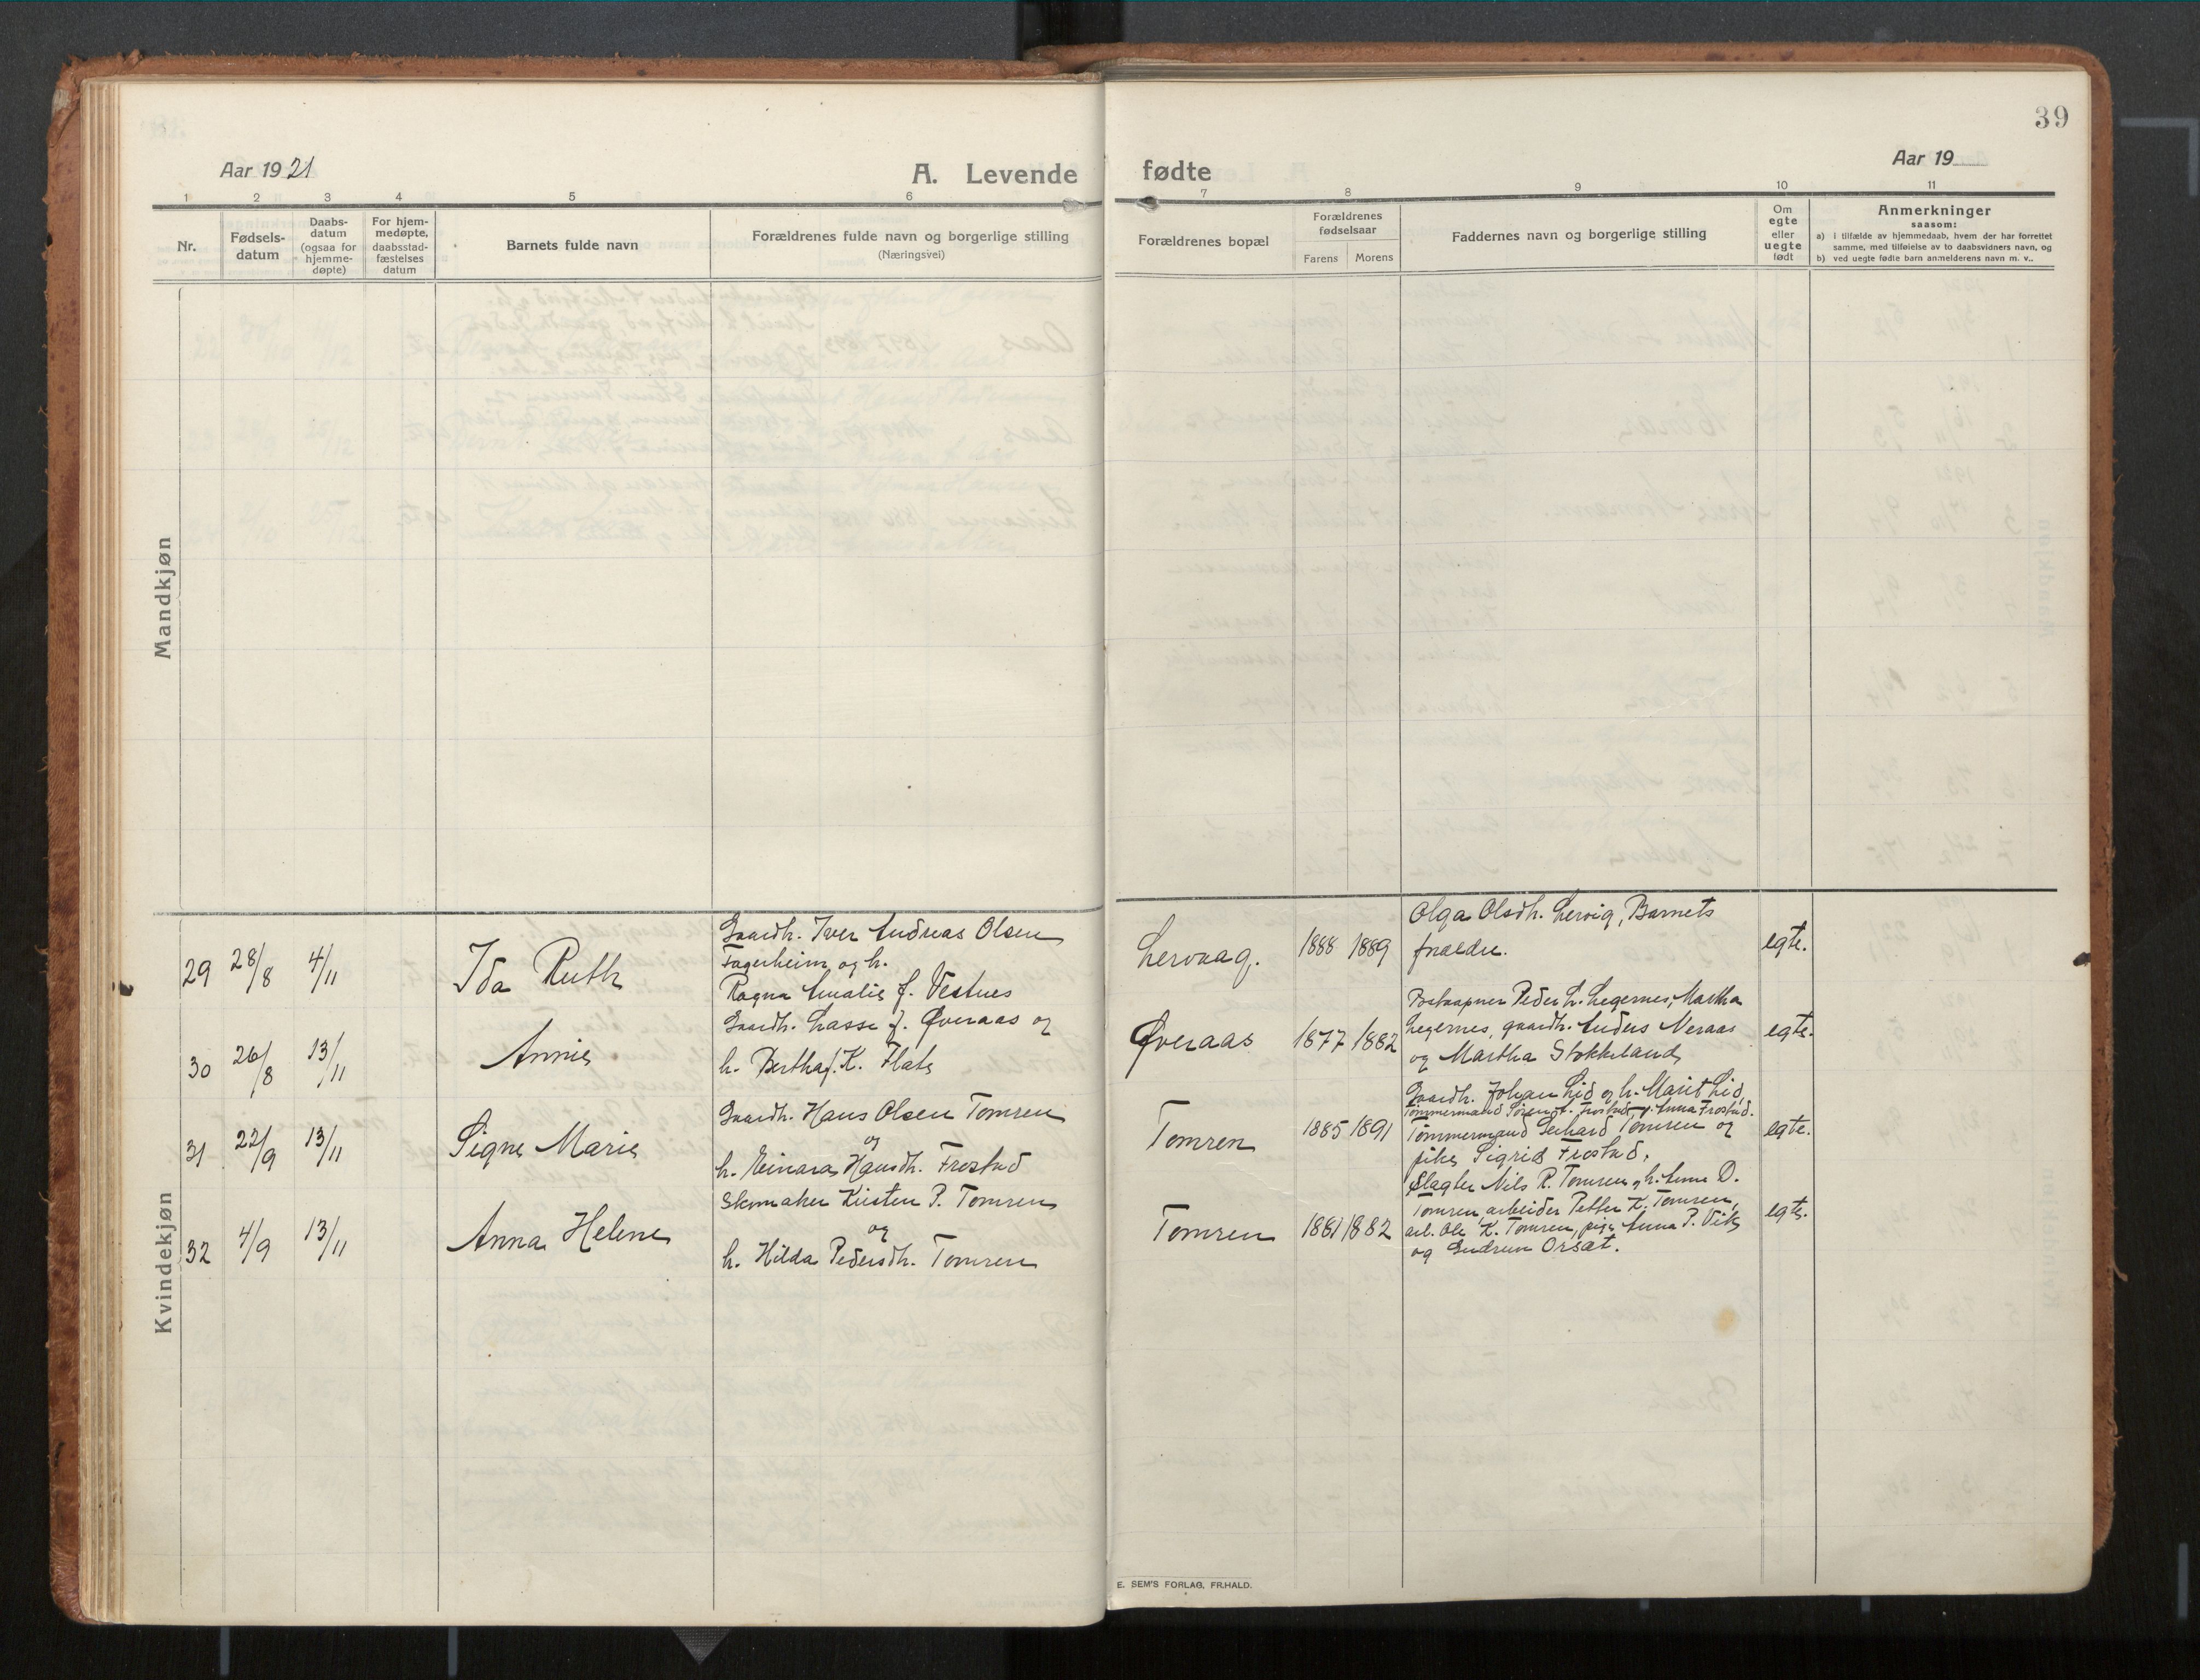 39
Aar 1921
A. Levende fødte
Aar 19
1 2 3 4 5 6 7 8 9 10 11
Nr.
Fødsels-
datum
Daabs-
datum
(ogsaa for
hjemme-
døpte)
For hjem-
medøpte,
daabsstad-
fæstelses
datum
Barnets fulde navn
Forældrenes fulde navn og borgerlige stilling
(Næringsvei)
Forældrenes bopæl
Forældrenes
fødselsaar
Farens Morens
Faddernes navn og borgerlige stilling
Om
egte
eller
uegte
født
Anmerkninger
saasom:
a) i tilfælde av hjemmedaab, hvem der har forrettet
samme, med tilføielse av to daabsvidners navn, og
b) ved uegte fødte barn anmelderens navn m. v..
Mandkjøn
Kvindekjøn
29 28/8 4/11 Ida Ruth
Gaardb. Iver Andreas Olsen
Fagerheim og h.
Ragna Amalie f. Vestnes
Lervaag. 1888 1889
Olga Olsdh. Lervig, Barnets
forældre.
egte.
30 26/8 13/11 Annie
Gaardb. Lasse J. Øveraas og
h. Bertha f. K. Flate
Øveraas 1877 1882
Postaapner Peder L. Legernes, Martha
Legernes, gaardb. Anders Neraas
og Martha Stokkeland
egte.
31 22/9 13/11 Signe Marie
Gaardb. Hans Olsen Tomren
og
h. Einara Hansdh. Frostad
Tomren 1885 1891
Gaardb. Johan Lid og h. Marit Lid,
Tømmermand Søren Frostad, Anna Frostad.
Tømmermand Gerhard Tomren og
pike Sigrid Frostad.
egte.
32 4/9 13/11 Anna Helene
Skomaker Kristen P. Tomren
og
h. Hilda Pedersdh. Tomren
Tomren 1881 1882
Slagter Nils R. Tomren og h. Anna D.
Tomren, arbeider Petter K. Tomren,
arb. Ole K. Tomren, pige Anna P. Vik
og Gudrun Orsæt.
egte.
E. SEM'S FORLAG, FR.HALD.